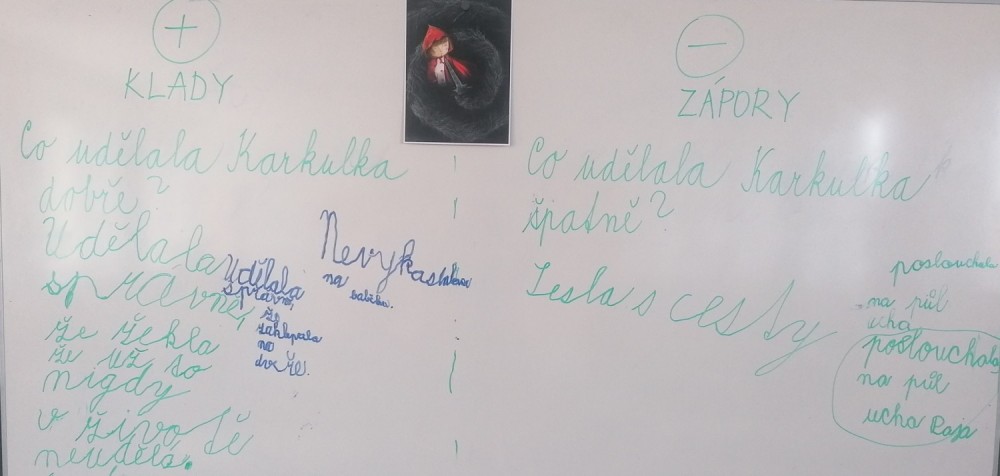 +
KLADY
Co udělala Karkulka
dobře?
Udělala
správně,
že řekla
že už to
nigdy
v životě
neudělá.
Udělala
správně,
že
zaklepala
na
dveře.
Nevykašlala
na
babičku.
−
ZÁPORY
Co udělala Karkulka
špatně?
Sešla s cesty
poslouchala
na půl
ucha
poslouchala
na půl
ucha Raja